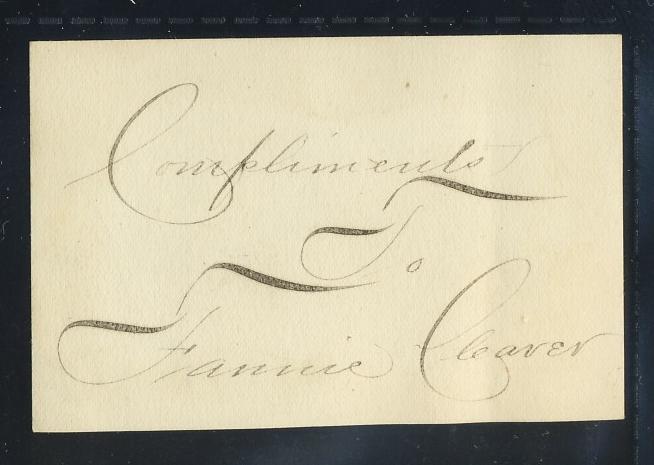 Compliments
To
Fannie Cleaver